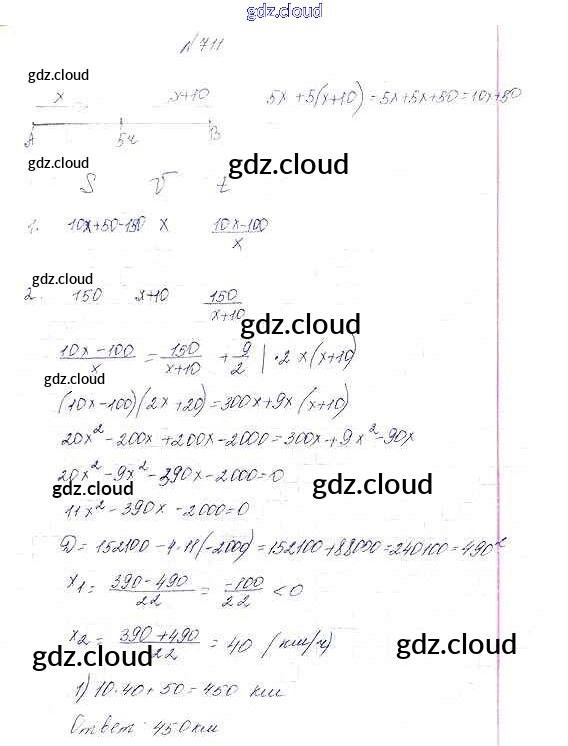 gdz.cloud
№711
gdz.cloud
x x+10 5x + 5(x+10) = 5x+5x+50 = 10x+50
A 5ч B
gdz.cloud gdz.cloud
S V t
1. 10x+50-150 x \frac{10x-100}{x}
gdz.cloud
2. 150 x+10 \frac{150}{x+10}
gdz.cloud
\frac{10x-100}{x} = \frac{150}{x+10} + \frac{9}{2} | ·2x(x+10)
gdz.cloud
(10x-100)(2x+20)=300x+9x(x+10)
20x²-200x+200x-2000=300x+9x²-90x
gdz.cloud gdz.cloud
20x²-9x²-390x-2000=0
11x²-390x-2000=0
D=152100-4·11(-2000)=152100+88000=240100=490²
x₁= \frac{390-490}{22} = \frac{-100}{22} <0
x₂= \frac{390+490}{22} = 40 (км/ч)
gdz.cloud gdz.cloud
1) 10·40+50=450 км
Ответ: 450км
gdz.cloud